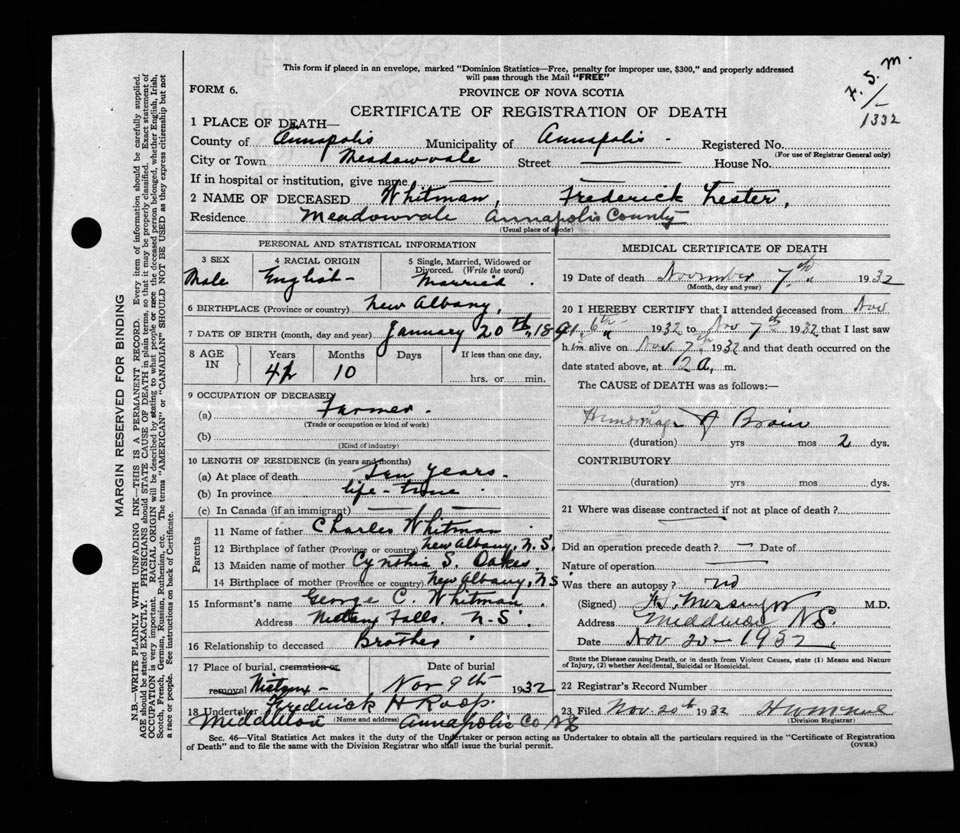 This form if placed in an envelope, marked "Dominion Statistics—Free, penalty for improper use, $300," and properly addressed
will pass through the Mail "FREE"
FORM 6.
PROVINCE OF NOVA SCOTIA
CERTIFICATE OF REGISTRATION OF DEATH
1332
1 PLACE OF DEATH—
County of Annapolis Municipality of Annapolis - Registered No.
(For use of Registrar General only)
City or Town Meadowvale Street House No.
If in hospital or institution, give name
2 NAME OF DECEASED Whitman, Frederick Lester,
Residence Meadowvale Annapolis County
(Usual place of abode)
PERSONAL AND STATISTICAL INFORMATION
3 SEX
Male
4 RACIAL ORIGIN
English
5 Single, Married, Widowed or
Divorced. (Write the word)
Married
6 BIRTHPLACE (Province or country) New Albany,
7 DATE OF BIRTH (month, day and year) January 20th, 1891
8 AGE IN
Years Months Days If less than one day.
10 hrs. or min.
9 OCCUPATION OF DECEASED
(a) Farmer.
(Trade or occupation or kind of work)
(b)
(Kind of industry)
10 LENGTH OF RESIDENCE (in years and months)
(a) At place of death Ten years.
(b) In province life-time
(c) In Canada (if an immigrant)
Parents
11 Name of father Charles Whitman
12 Birthplace of father (Province or country) New Albany, N.S.
13 Maiden name of mother Cynthia S. Oakes
14 Birthplace of mother (Province or country) New Albany, N.S
15 Informant's name George C. Whitman
Address Nictaux Falls, N.S.
16 Relationship to deceased Brother
17 Place of burial, cremation or
removal Nictaux
Date of burial
Nov 9th 1932
18 Undertaker Frederick H Roop
(Name and address)
Middleton Annapolis Co N.S
MEDICAL CERTIFICATE OF DEATH
19 Date of death November 7th 1932
(Month, day and year)
20 I HEREBY CERTIFY that I attended deceased from Nov
6th 1932 to Nov 7th 1932 that I last saw
him alive on Nov 7th 1932 and that death occurred on
date stated above, at 2 a. m.
The CAUSE OF DEATH was as follows:—
Hemorrhage of Brain
(duration) yrs mos 2 dys.
CONTRIBUTORY
(duration) yrs mos dys.
21 Where was disease contracted if not at place of death?
Did an operation precede death? Date of
Nature of operation
Was there an autopsy? no
(Signed) M.D.
Address Middleton N.S.
Date Nov 20-1932
State the Disease causing Death, or in death from Violent Causes, state (1) Means and Nature
of Injury, (2) whether Accidental, Suicidal or Homicidal.
22 Registrar's Record Number
23 Filed Nov. 20th 1932
(Division Registrar)
Sec. 46—Vital Statistics Act makes it the duty of the Undertaker or person acting as Undertaker to obtain all the particulars required in the "Certificate of Registration
of Death" and to file the same with the Division Registrar who shall issue the burial permit.
(OVER)
MARGIN RESERVED FOR BINDING
N.B.—WRITE PLAINLY WITH UNFADING INK—THIS IS A PERMANENT RECORD. Every item of information should be carefully supplied.
AGE should be stated EXACTLY. PHYSICIANS should STATE CAUSE OF DEATH in plain terms, so that it may be properly classified. Exact statement of
OCCUPATION is very important. RACIAL ORIGIN will be described by stating to what people or race the deceased person belonged, whether English, Irish,
Scotch, French, German, Russian, Ruthenian, etc. The terms "AMERICAN" or "CANADIAN" SHOULD NOT BE USED as they express citizenship but not
a race or people. See instructions on back of Certificate.